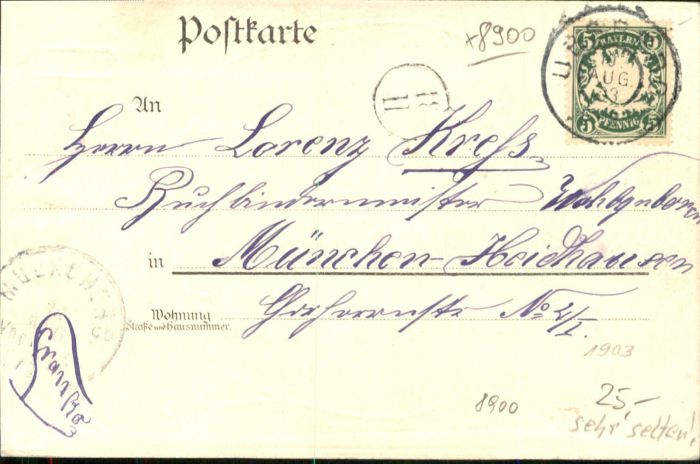 Postkarte
+8900
5 BAYERN 5
AUG.
5 PFENNIG 5
An
Herrn Lorenz Kress,
Buchbindermeister Wohlgeboren
in München-Heidhausen
Wohnung
Straße und Hausnummer.
No 2/I.
MUENCHEN
Franko
1903
8900
25,-
sehr selten!